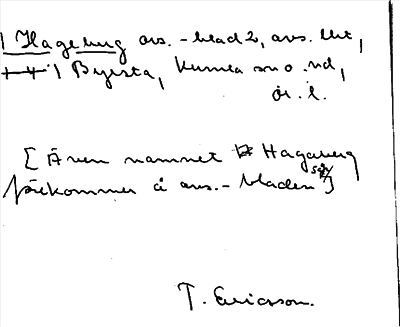 1 Hageburg avs. -blad 2, avs. lht,
1 Byrsta, Kumla sn o. nd,
ör. l.
[Även namnet Hagaberg
förekommer å avs.-bladen]
T. Ericsson.